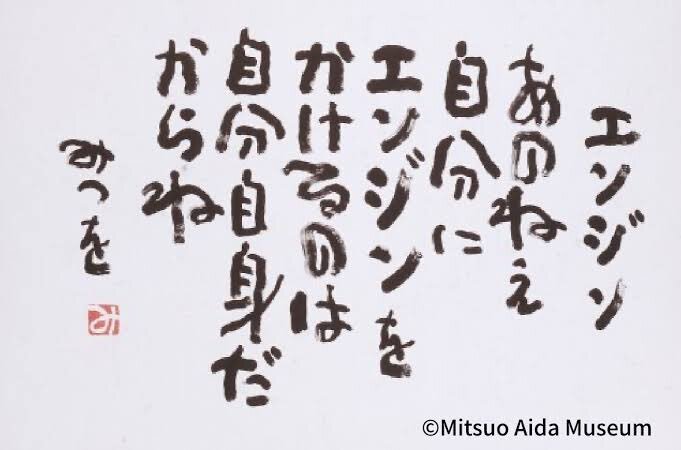 エンジン
あのねえ
自分に
エンジンを
かけるのは
自分自身だ
からね
みつを
み
©Mitsuo Aida Museum